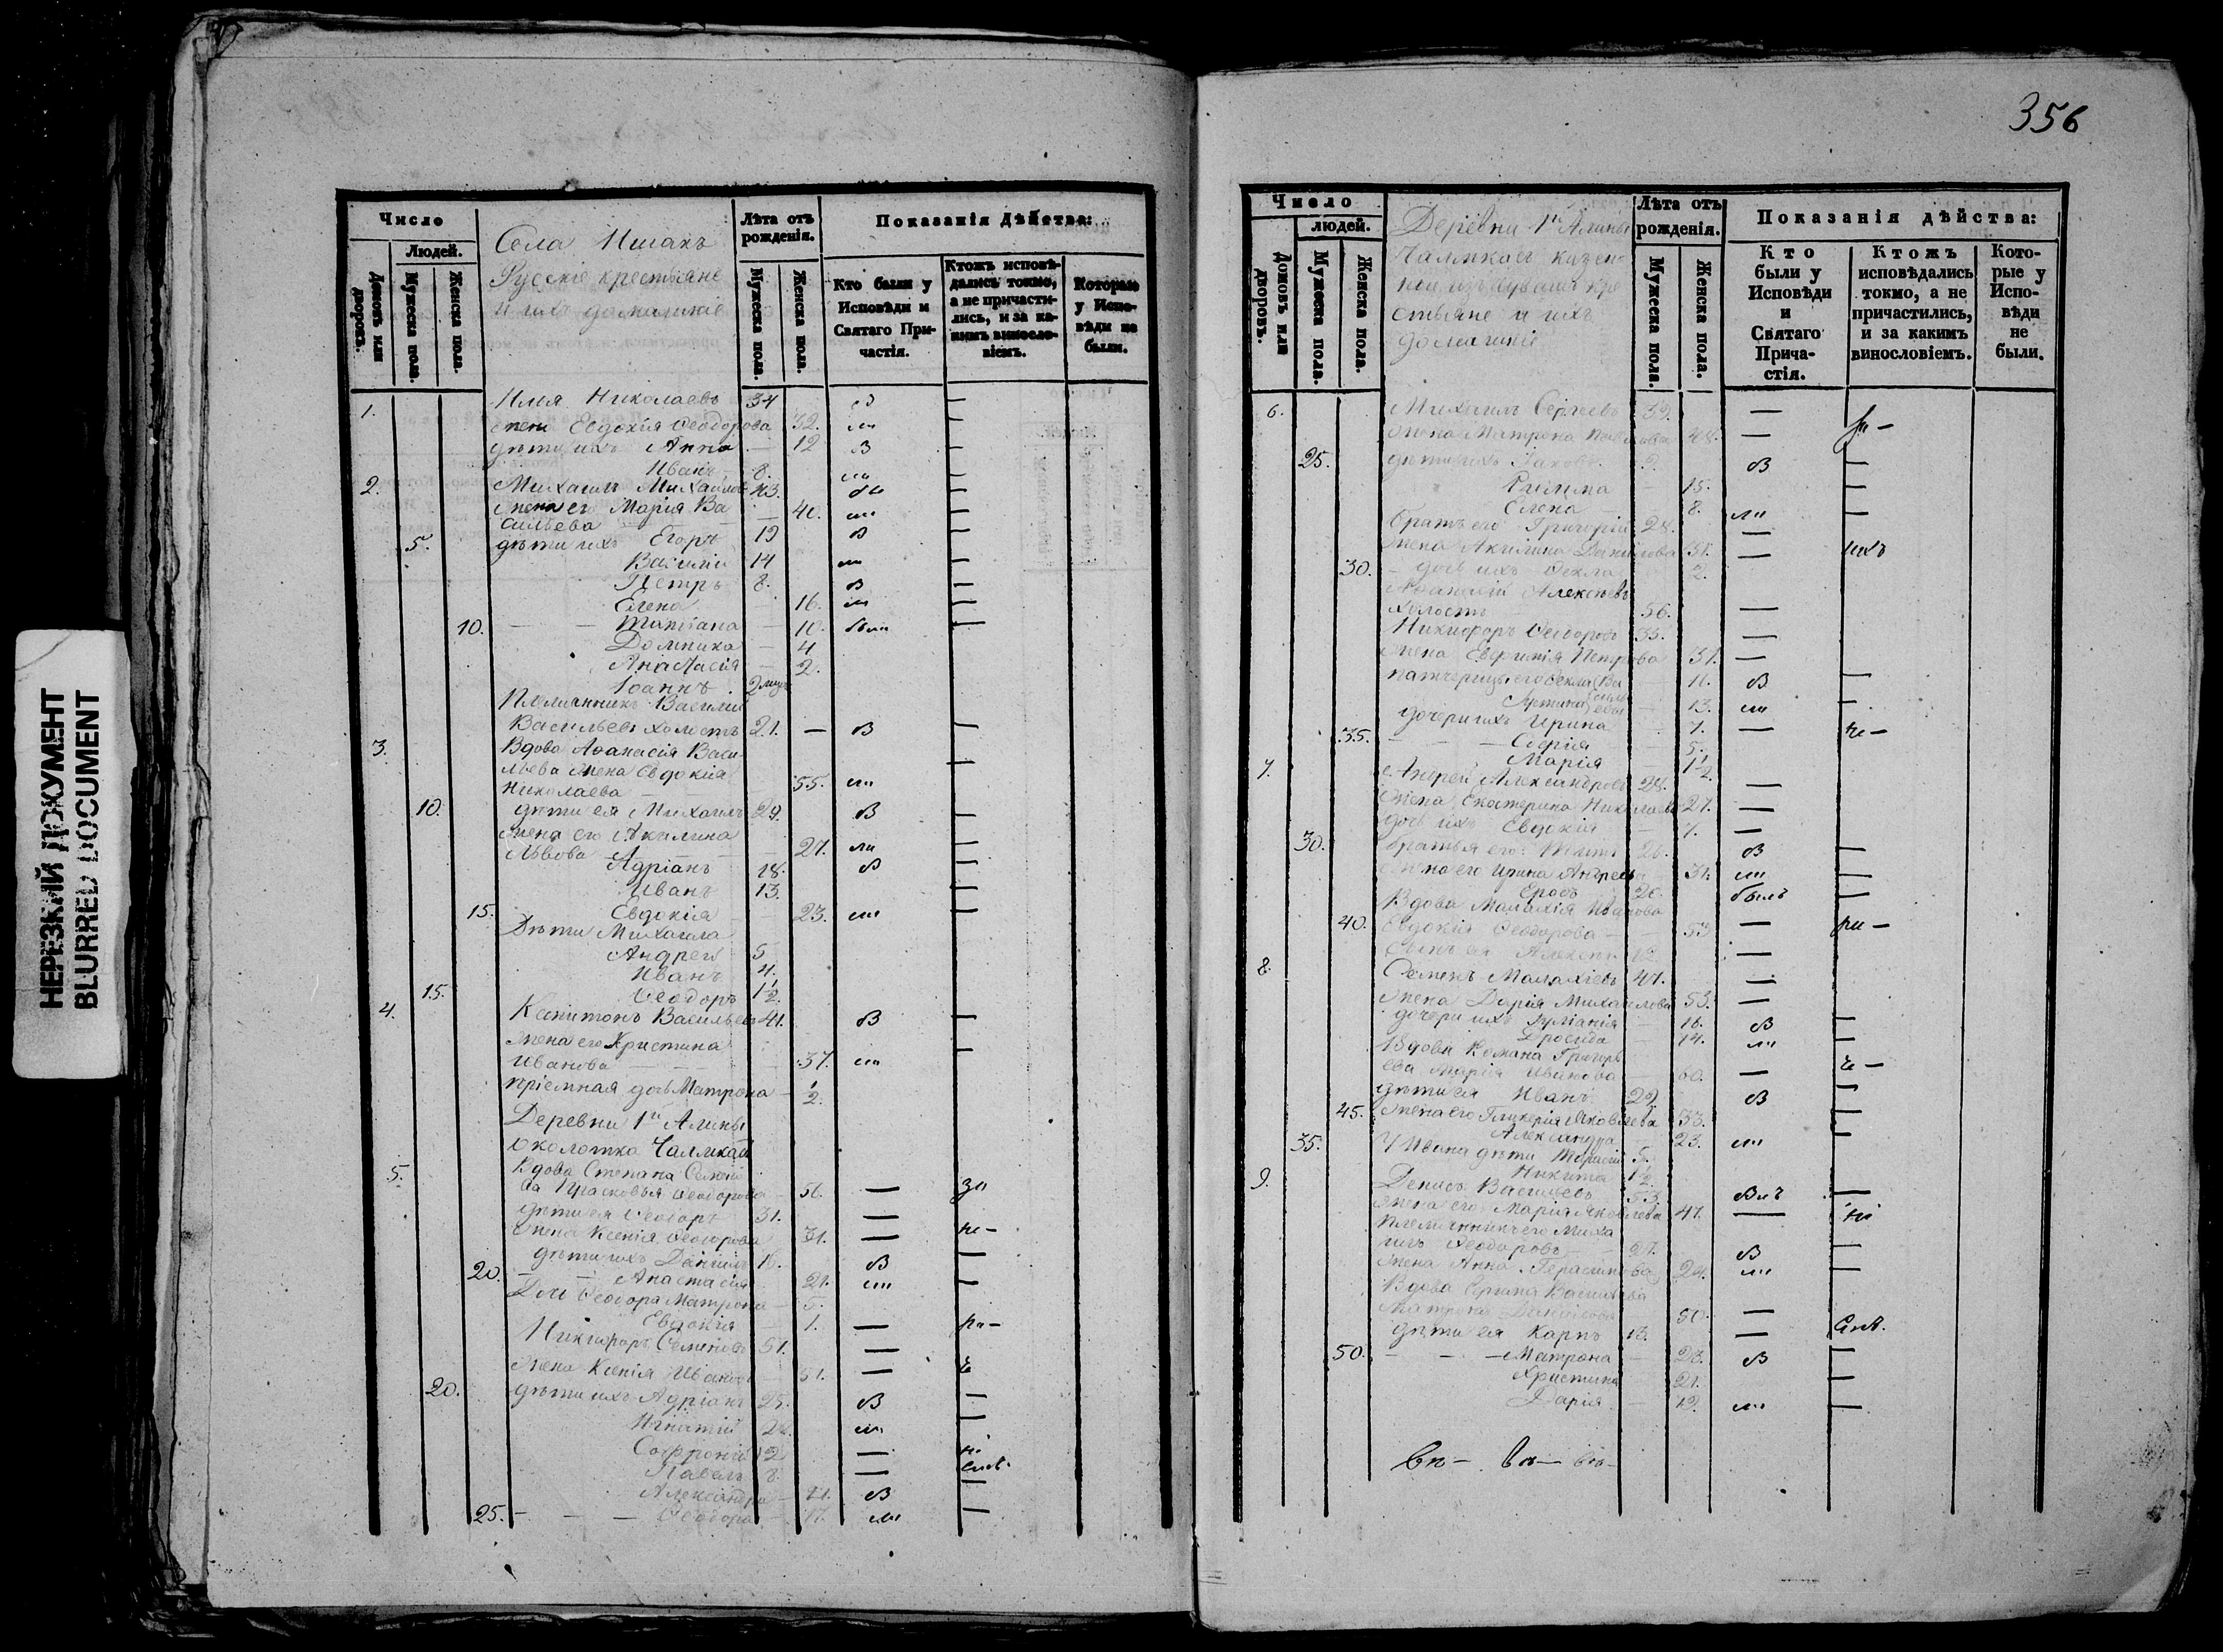 НЕРЕЗКИЙ ДОКУМЕНТ
BLURRED DOCUMENT
Число
Людей.
Домовъ или дворовъ.
Мужеска пола.
Женска пола.
Села Ишакъ
Русскіе крестьяне
и ихъ домашніе
Лѣта отъ рожденія.
Мужеска пола.
Женска пола.
Показанія дѣйства:
Кто были у Исповѣди и Святаго При-частія.
Ктожъ исповѣ-дались токмо, а не причасти-лись, и за ка-кимъ винослο-віемъ.
Которые у Испо-вѣди не были.
1. Илія Николаевъ 34
жена Евдокія Ѳеодорова 32. ли
дѣти ихъ Анна 12 в
Иванъ 8. ли
2. Михаилъ Михайловъ 43. бы
жена его Марія Ва 40. ли
сильева
5. дѣти ихъ Егоръ 19 в
Василій 14 ли
Петръ 8. в
Елена 16. ли
10. Татіана 10. были
Домника 4
Анастасія 2.
Іоаннъ 2 мѣс
Племянникъ Василій
Васильевъ холостъ 21. — в
3. Вдова Аѳанасія Васи
льева жена Евдокія
Николаева 55. ли
10. дѣти ея Михаилъ 29. в
жена его Акилина
Львова 27. ли
Адріанъ 18. в
Иванъ 13.
15. Евдокія 23. ли
Дѣти Михаила
Андрей 5
Иванъ 4.
15. Ѳеодоръ 1½.
4. Капитонъ Васильевъ 41. в
жена его Христина
Иванова 37. ли
пріемная дочь Матрона ½.
Деревни 1й Алины
околотка Чалмкасы
5. Вдова Степана Семено
ва Прасковья Ѳеодорова 56. — за
дѣти ея Ѳеодоръ 31. —
жена Ксенія Ѳеодорова 31. — не —
дѣти ихъ Даніилъ 18. в
20. Анастасія 21. ли
Дочь Ѳеодора Матрона 5.
Евдокія 1. — ра —
Никифоръ Семеновъ 51. —
жена Ксенія Иванова 51. —
20. дѣти ихъ Адріанъ 25. в
Игнатій 22. ли
Софроній 12 —
Павелъ 8. —
Александра в
25. Ѳеодора 17. ли
356
Число
людей.
Домовъ или дворовъ.
Мужеска пола.
Женска пола.
Деревни 1й Алины
Чалмкасъ казен-
ные изъ чувашъ кре
стьяне и ихъ
домашніе
Лѣта отъ рожденія.
Мужеска пола.
Женска пола.
Показанія дѣйства:
Кто были у Исповѣди и Святаго Прича-стія.
Ктожъ исповѣдались токмо, а не причастились, и за какимъ винословіемъ.
Кото-рые у Испо-вѣди не были.
6. Михаилъ Сергеевъ 39. —
жена Матрона Павлова 48. —
25. дѣти ихъ Іаковъ 9. в
Римма 15.
Елена 8. ли
братъ его Григорій 28. —
жена Акилина Данилова 31. — ихъ
30. дочь ихъ Ѳекла 2.
Аѳанасій Алексѣевъ
холостъ 56. —
Никифоръ Ѳеодоровъ 35. —
жена Евфимія Петрова 37. —
патчерицы его Ѳекла Ва 16. в
13. ли
35. дочери ихъ Ирина 7. — не —
Софія 5.
Марія 1½
7. Андрей Александровъ 28. —
жена Екатерина Николаева 27. —
дочь ихъ Евдокія 7. —
30. братья его: в
жена его Ирина Андреева 31. ли
20. былъ
Вдова Малахія Иванова
40. Евдокія Ѳеодорова 53 — ри —
сынъ ея Алексѣй —
8. Семенъ Малахіевъ 47. —
жена Дарія Михайлова 53. —
дочери ихъ 16. в
Дросида 14. ли
Вдова Романа Григорь
ева Марія Иванова 60. —
дѣти ея Иванъ 29 в
45. жена его Гликерія Яковлева 33.
Александра 23. ли
35. У Ивана дѣти Тарасій 5.
Никита 1½
9. Денисъ Васильевъ 53.
жена его Марія Яковлева 47. — не
племянникъ его Миха
илъ Ѳеодоровъ 27. в
жена Анна Герасимова 24. ли
Вдова Ефима Васильева
Матрона Данилова 50. — спѣ.
дѣти ея Карпъ 18. —
50. — Матрона 28. в
Христина 21.
Дарія 19. ли